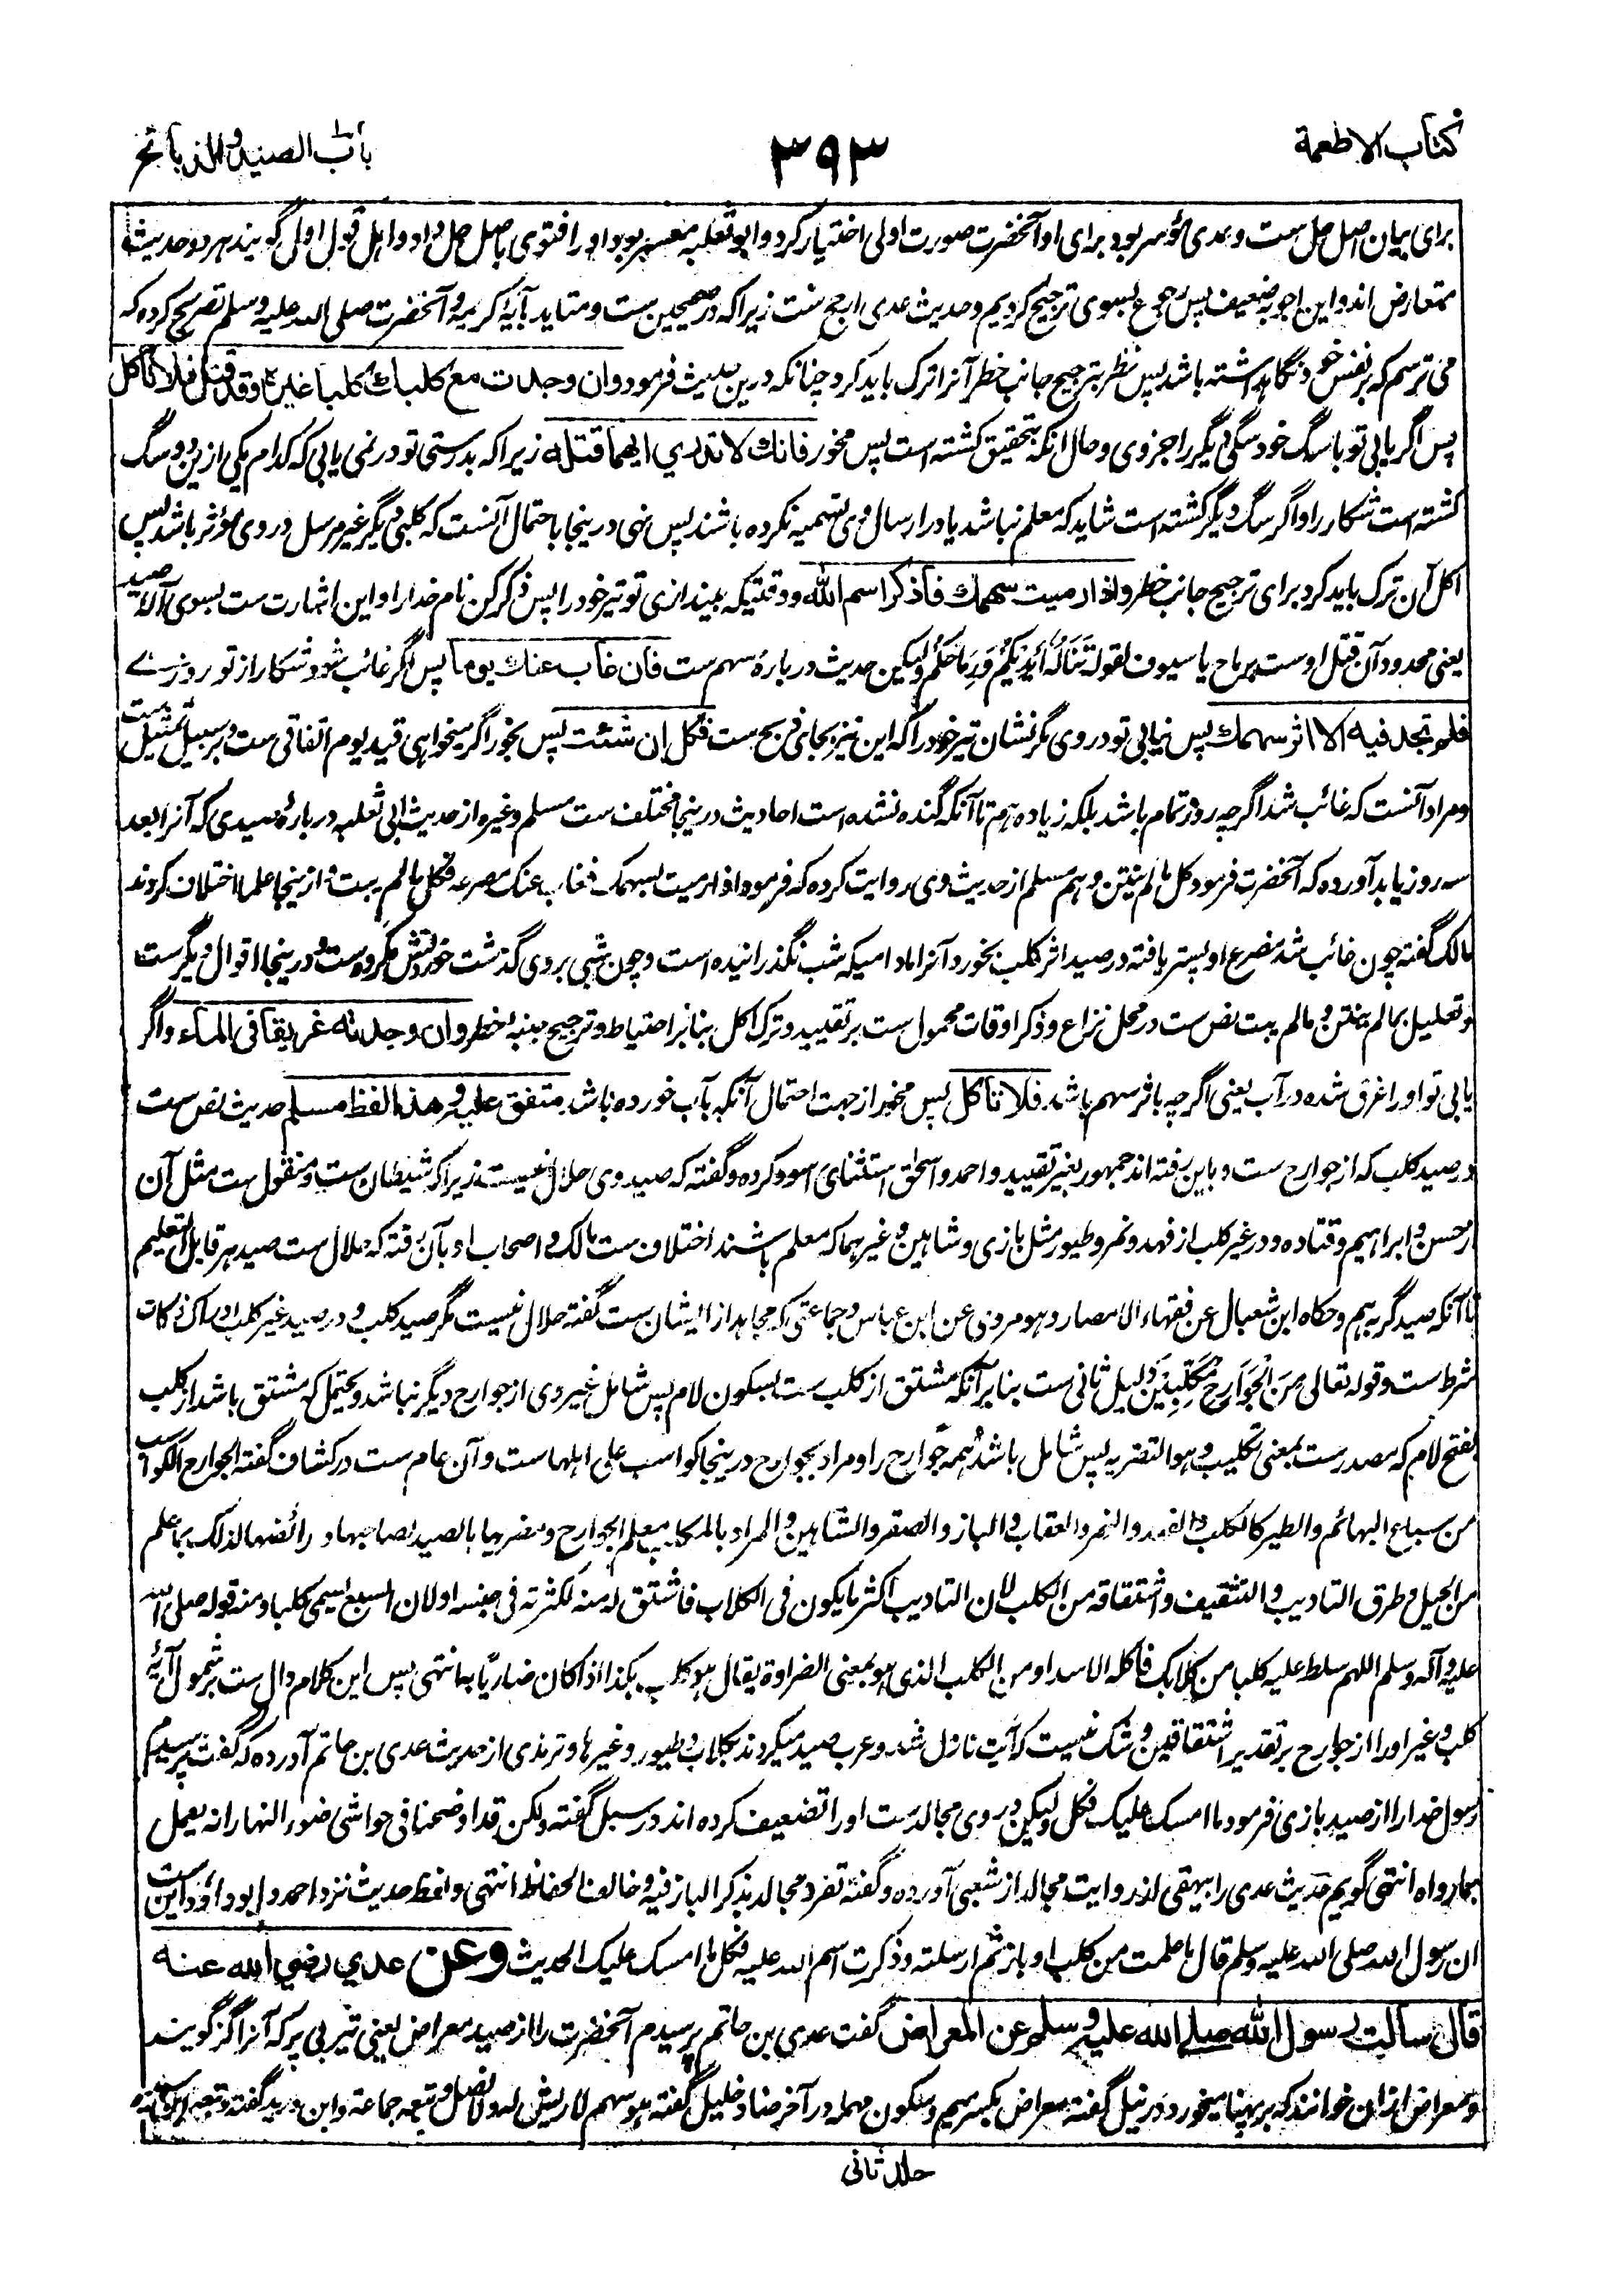 کتاب الاطعمة
۳۹۳
باب الصيد والذبائح
برای بیان اصل حل ست و عدی مؤسر بود برای او آنحضرت صورت اولی اختیار کرد و ابو ثعلبه معسر بود او را فتوی باصل حل داد و اہل قول اول گویند ہر دو حدیث
متعارض اند و این اجوبه ضعیف پس رجوع بسوی ترجیح کردیم و حدیث عدی ارجح ست زیرا کہ در صحیحین ست و متاید بآیۂ کریمہ و آنحضرت صلی الله علیہ وسلم تصریح کردہ کہ
می ترسم کہ بر نفس خود نگاہداشتہ باشد پس نظر بترجیح جانب خطر آنرا ترک باید کرد چنانکہ درین حدیث فرمود وان وجدت مع كلبك كلبا غيره وقد قتل فلا تاكل
پس اگر یابی تو با سگ خود سگی دیگر را جز وی و حال آنکہ بتحقیق کشتہ است پس مخور فانك لا تدري ايهما قتله زیرا کہ بدرستی تو در نمی یابی کہ کدام یکی ازین دو سگ
کشتہ است شکار را و اگر سگ دیگر کشتہ است شاید کہ معلم نباشد یا در ارسال وی تسمیہ نکردہ باشند پس نہی درینجا باحتمال آنست کہ کلبی دیگر غیر مرسل در وی مؤثر باشد پس
اکل آن ترک باید کرد برای ترجیح جانب خطر واذا رميت سهمك فاذكر اسم الله و وقتیکہ بیندازی تو تیر خود را پس ذکر کن نام خدا را و این اشارت ست بسوی آلۂ صید
یعنی محدود آن قتل اوست برماح یا سیوف لقولہ تَنَالُهُ أَيْدِيكُمْ وَرِمَاحُكُمْ ولیکن حدیث دربارۂ سہم ست فان غاب عنك يوما پس اگر غائب شود شکار از تو روزے
فلم تجد فيه الا اثر سهمك پس نیابی تو در وی مگر نشان تیر خود را کہ این نیز بجای ذبح ست فكل ان شئت پس بخور اگر میخواہی قید یوم اتفاقی ست و بر سبیل تمثیل ست
و مراد آنست کہ غائب شد اگرچہ روز تمام باشد بلکہ زیادہ ہم تا آنکہ گندہ نشدہ است احادیث درینجا مختلف ست مسلم وغیرہ از حدیث ابی ثعلبہ دربارۂ صیدی کہ آنرا بعد
سہ روز یابد آوردہ کہ آنحضرت فرمود کل مالم ینتن و ہم مسلم از حدیث وی روایت کردہ کہ فرمود اذا رمیت بسہمک فغاب عنک مصرعہ فکل مالم یبت و ازینجا علما اختلاف کردند
مالک گفتہ چون غائب شد مصرع او پستر یافتہ در صید اثر کلب بخورد آنرا مادامیکہ شب نگذرانیدہ است و چون شبی بروی گذشت خوردنش مکروہ ست و درینجا اقوال دیگر ست
و تعلیل بمالم ینتن و مالم یبت نص ست در محل نزاع و ذکر اوقات محمول ست بر تقیید و ترک اکل بنابر احتیاط و ترجیح جنبۂ خطر وان وجدته غريقا في الماء و اگر
یابی تو او را غرق شدہ در آب یعنی اگرچہ باثر سہم باشد فلا تاكل پس مخور از جہت احتمال آنکہ بآب خوردہ باشد متفق عليه وهذا لفظ مسلم حدیث نص ست
در صید کلب کہ از جوارح ست و باین رفتہ اند جمہور بغیر تقیید و احمد و اسحاق استثنای اسود کردہ و گفتہ کہ صید وی حلال نیست زیرا کہ شیطان ست و منقول ست مثل آن
از حسن و ابراہیم و قتادہ و در غیر کلب از فہد و نمر و طیور مثل بازی و شاہین و غیرہما کہ معلم باشند اختلاف ست مالک و اصحاب او بآن رفتہ کہ حلال ست صید ہر قابل التعلیم
تا آنکہ صید گربہ ہم و حکاہ ابن شعبان عن فقہاء الامصار و ہو مروی عن ابن عباس و جماعتی کہ مجاہد از ایشان ست گفتہ حلال نیست مگر صید کلب و در صید غیر کلب ادراک ذکات
شرط ست و قولہ تعالی مِنَ الْجَوَارِحِ مُكَلِّبِينَ دلیل ثانی ست بنابر آنکہ مشتق از کلب ست بسکون لام پس شامل غیر وی از جوارح دیگر نباشد و یحتمل کہ مشتق باشد از کلب
بفتح لام کہ مصدر ست بمعنی تکلیب و ہو التضریہ پس شامل باشد ہمہ جوارح را و مراد بجوارح درینجا کواسب علی اہلہا ست و آن عام ست در کشاف گفتہ الجوارح الکواسب
من سباع البہائم والطیر کالکلب والفہد والنمر والعقاب والباز والصقر والشاہین والمراد بالمکلب معلم الجوارح ومضریہا بالصید لصاحبہا ورائضہا لذلک بما علم
من الحیل وطرق التادیب والتثقیف واشتقاقہ من الکلب لان التادیب اکثر ما یکون فی الکلاب فاشتق لہ منہ لکثرتہ فی جنسہ او لان السبع یسمی کلبا ومنہ قولہ صلی الله
علیہ وآلہ وسلم اللہم سلط علیہ کلبا من کلابک فاکلہ الاسد او من الکلب الذی ہو بمعنی الضراوة یقال ہو کلب بکذا اذا کان ضاریا بہ انتہی پس این کلام دال ست بر شمول آیۂ
کلب و غیر او را از جوارح بر تقدیر اشتقاقین و شک نیست کہ آیت نازل شد و عرب صید میکردند بکلاب و طیور وغیرہا و ترمذی از حدیث عدی بن حاتم آوردہ کہ گفت پرسیدم
رسول خدا را از صید بازی فرمود ما امسک علیک فکل ولیکن در وی مجالد ست او را تضعیف کردہ اند در سبل گفتہ ولکن قد اوضحنا فی حواشی ضوء النہار انہ یعمل
بما رواہ انتہی گویم حدیث عدی را بیہقی از روایت مجالد از شعبی آوردہ و گفتہ تفرد مجالد بذکر الباز فیہ وخالف الحفاظ انتہی و لفظ حدیث نزد احمد و ابو داؤد این ست
ان رسول الله صلی الله علیہ وسلم قال ما علمت من کلب او باز ثم ارسلتہ وذکرت اسم الله علیہ فکل ما امسک علیک الحدیث وعن عدي رضي الله عنه
قال سالت رسول الله صلى الله عليه وسلم عن المعراض گفت عدی بن حاتم پرسیدم آنحضرت را از صید معراض یعنی تیر بی پر کہ آنرا گز گویند
و معراض ازان خوانند کہ بر پہنا میخورد و در نیل گفتہ معراض بکسر میم و سکون مہملہ در آخر ضاد خلیل گفتہ ہو سہم لا ریش لہ ولا نصل و تبعہ جماعة و ابن درید گفتہ و تبعہ ابن سیدہ
جلد ثانی